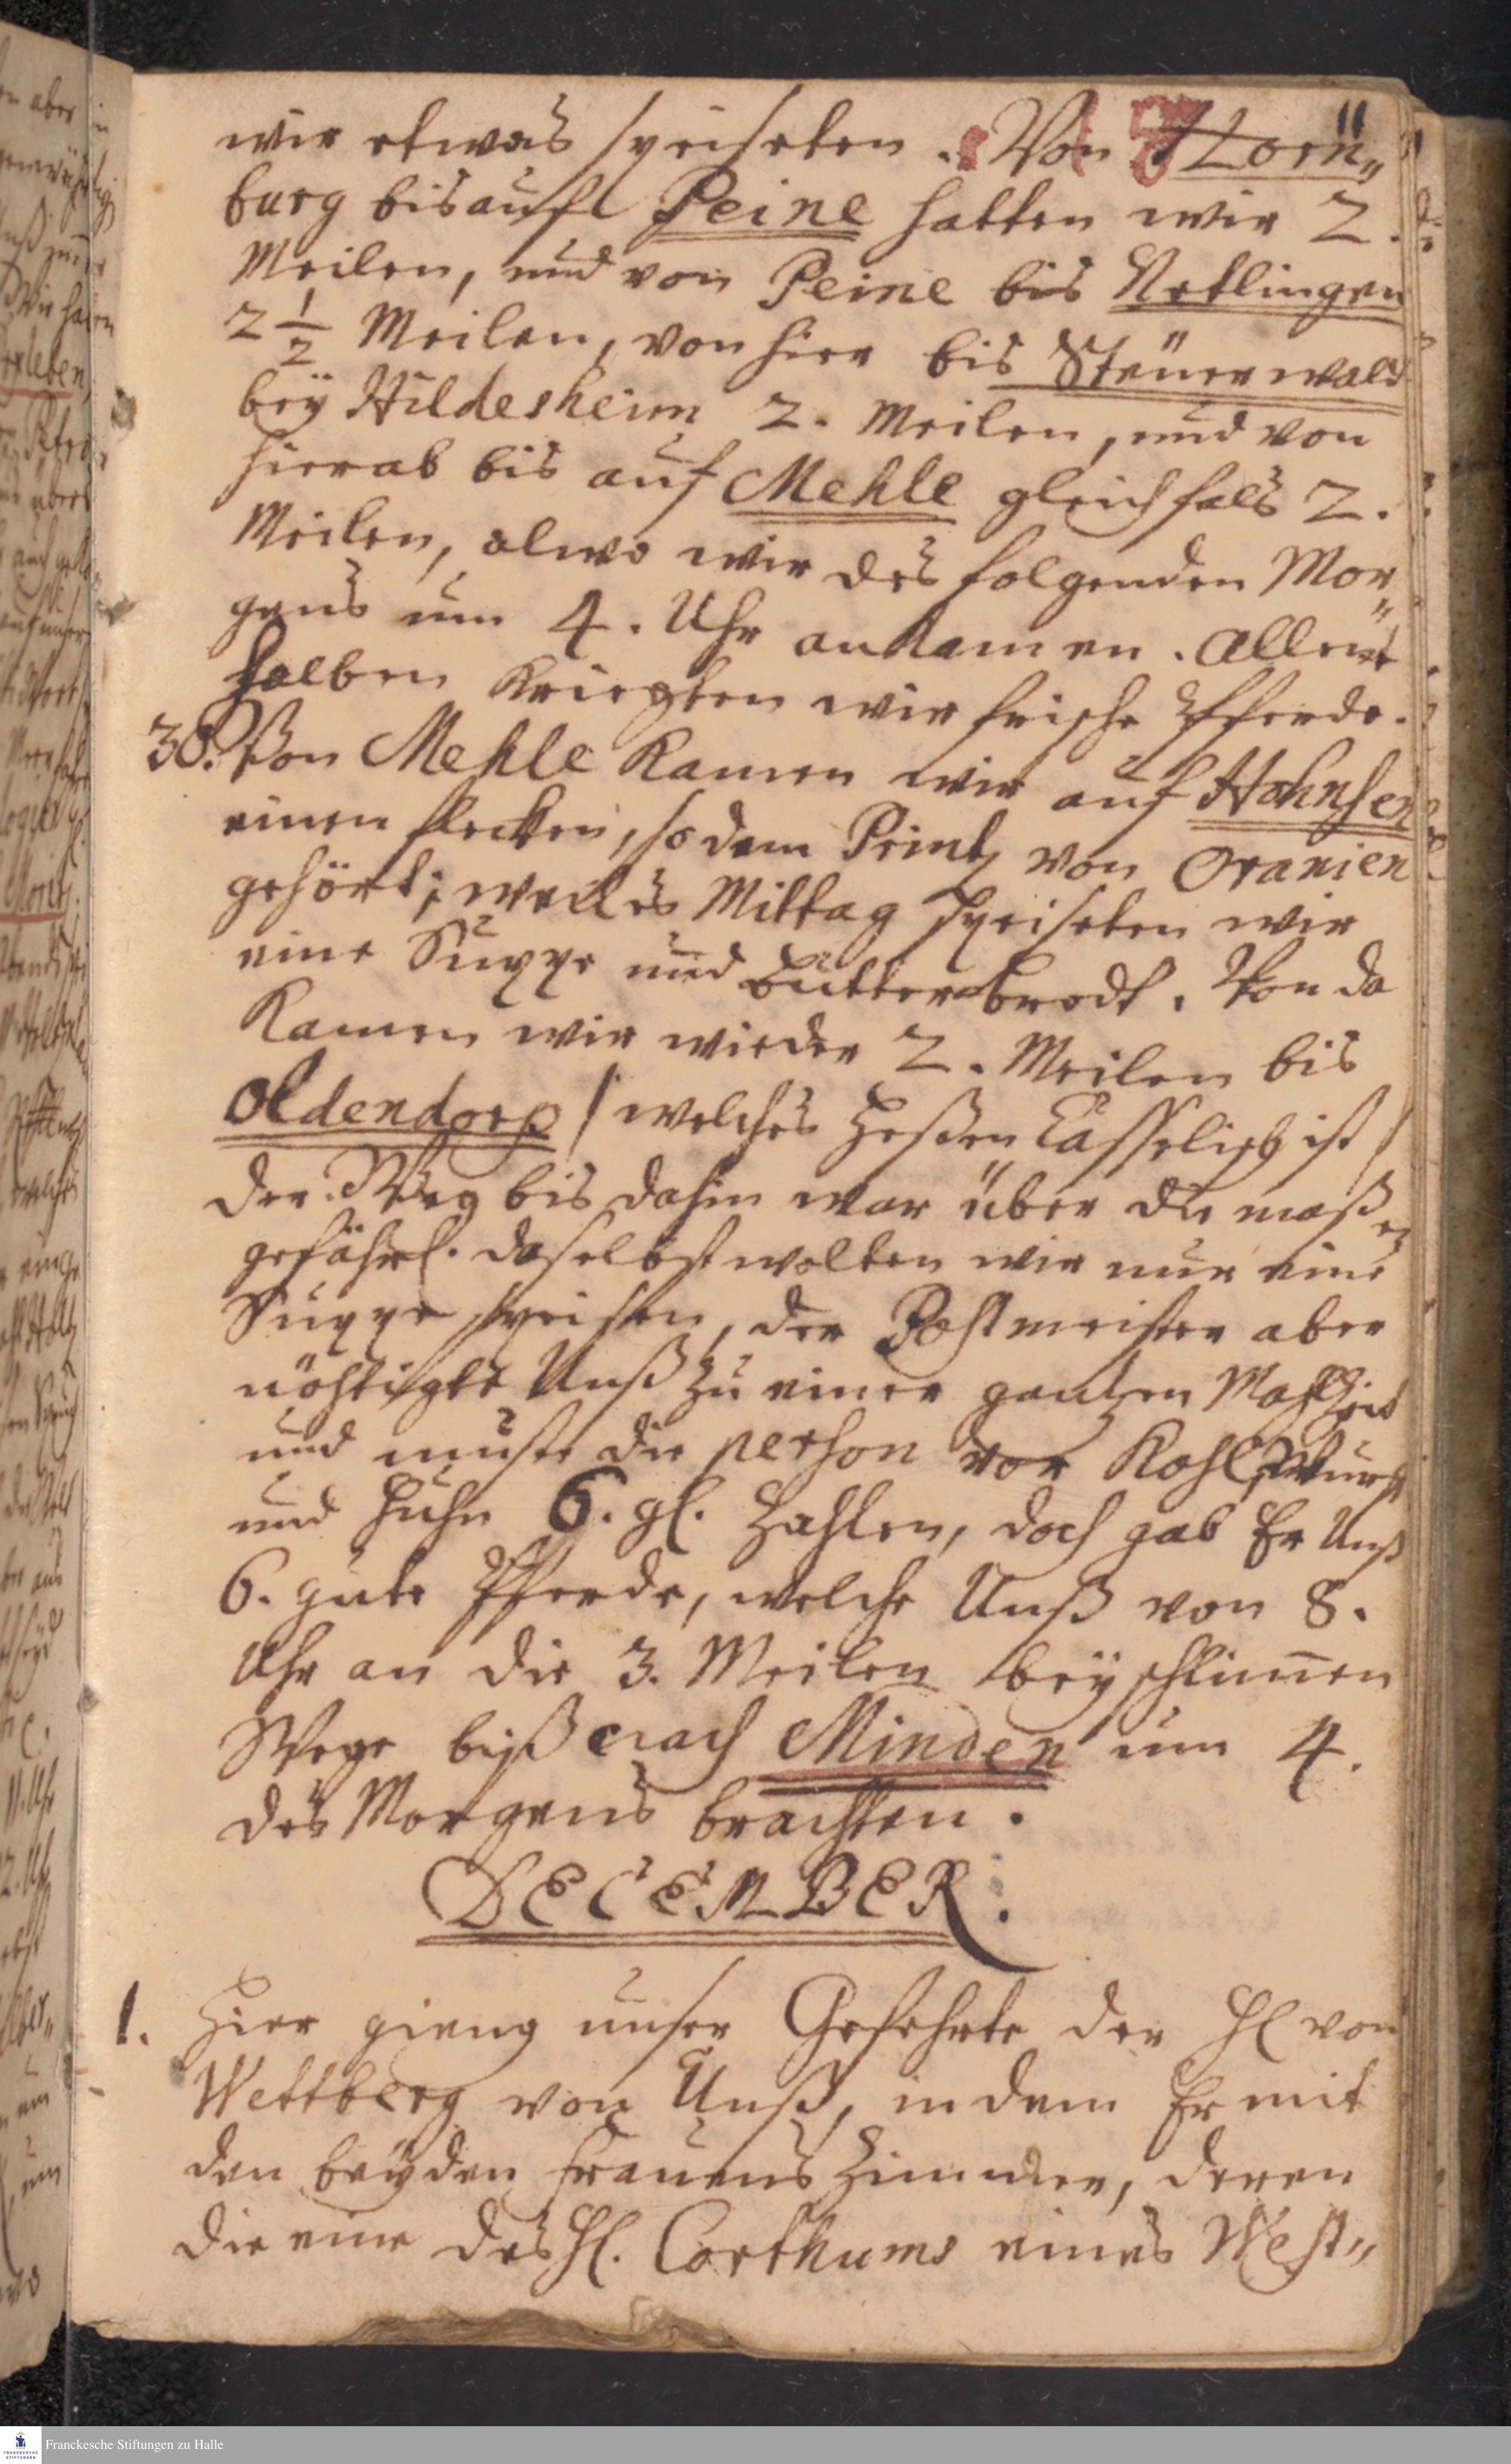 11
wir etwas speiseten. Von Horn„
burg bis auff Peine hatten wir 2.
Meilen, und von Peine bis Netlingen
2 1/2 Meilen, von hier bis Steuerwald
beÿ Hildesheim 2. Meilen, und von
hier ab bis auf Mehle gleichfals 2.
Meilen, alwo wir des folgenden Mor„
gens um 4. Uhr ankamen. Allent
halben kriegten wir frische Pferde.
30. Von Mehle kamen wir auf Hohnsen
einen flecken, so dem Printz von Oranien
gehört; weil es Mittag speiseten wir
eine Suppe und butterbrodt. Von da
kamen wir wieder 2. Meilen bis
Oldendorp / welches Heßen Casselisch ist /
der Weg bis dahin war über die maßen
gefährl. daselbst wolten wir nur eine
Suppe speisen, der Postmeister aber
nöhtigte Unß zu einer gantzen Mahlzeit
und muste die person vor Kohl, Wurst
und Huhn 6. gl. zahlen, doch gab Er Unß
6. gute Pferde, welche Unß von 8.
Uhr an die 3. Meilen beÿ schlim̅en
Wege biß nach Minden um 4.
des Morgens brachten.
DECEMBER.
1. Hier gieng unser Gefehrte der H. von
Wettberg von Unß, in dem Er mit
den beÿden Frauens Zimmer, deren
die eine des H. Corthums eines West„
Franckesche Stiftungen zu Halle